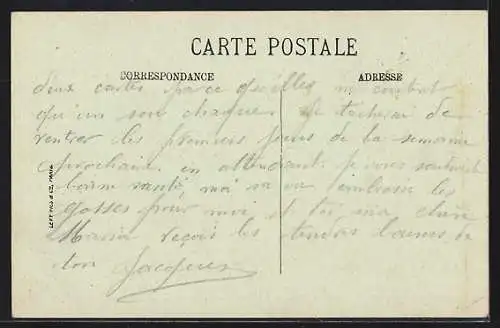 CARTE POSTALE
CORRESPONDANCE
ADRESSE
deux cartes parce qu'elles ne content
qu'un sou chaque. Je tacherai de
rentrer des premiers jours de la semaine
prochaine. en attendant. je vous souhaite
bonne santé, moi sa va embrasse les
gosses pour moi et toi, ma chère
Maria reçois les tendres baisers de
ton Jacques